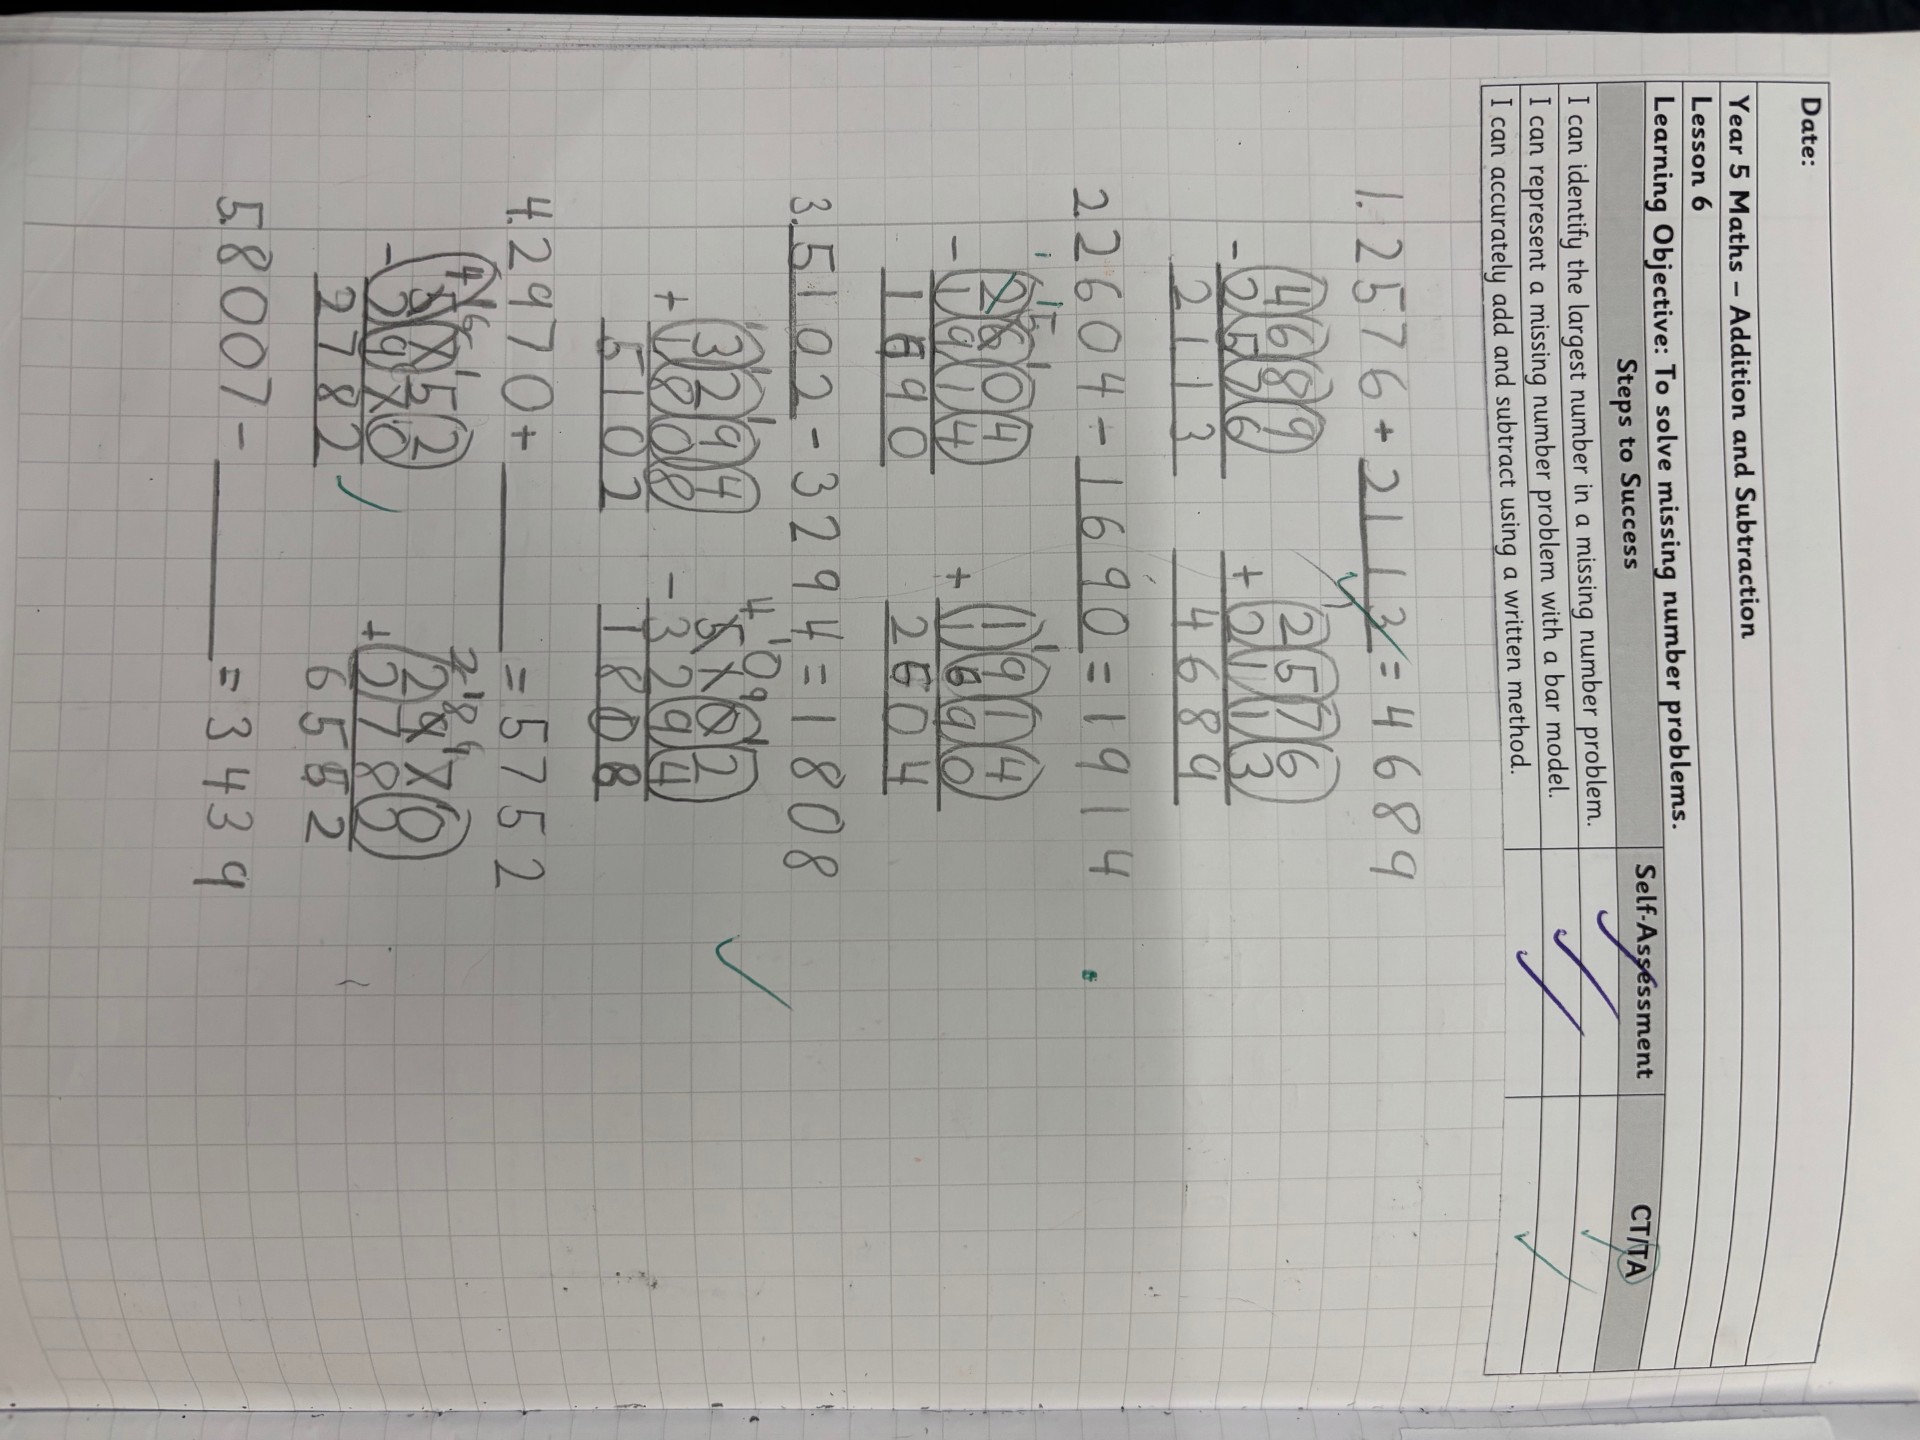 Date:
Year 5 Maths – Addition and Subtraction
Lesson 6
Learning Objective: To solve missing number problems.
Steps to Success Self-Assessment CT/TA
I can identify the largest number in a missing number problem.
I can represent a missing number problem with a bar model.
I can accurately add and subtract using a written method.
1. 2576 + 2113 = 4689
4689 2576
- 2576 + 2113
2113 4689
2. 2604 - 1690 = 1914
2604 1914
- 1914 + 1690
1690 2604
3. 5102 - 3294 = 1808
3294 5102
+ 1808 - 3294
5102 1808
4. 2970 + ____ = 5752
5752 2970
- 2970 + 278
2782 6552
5. 8007 - ____ = 3439